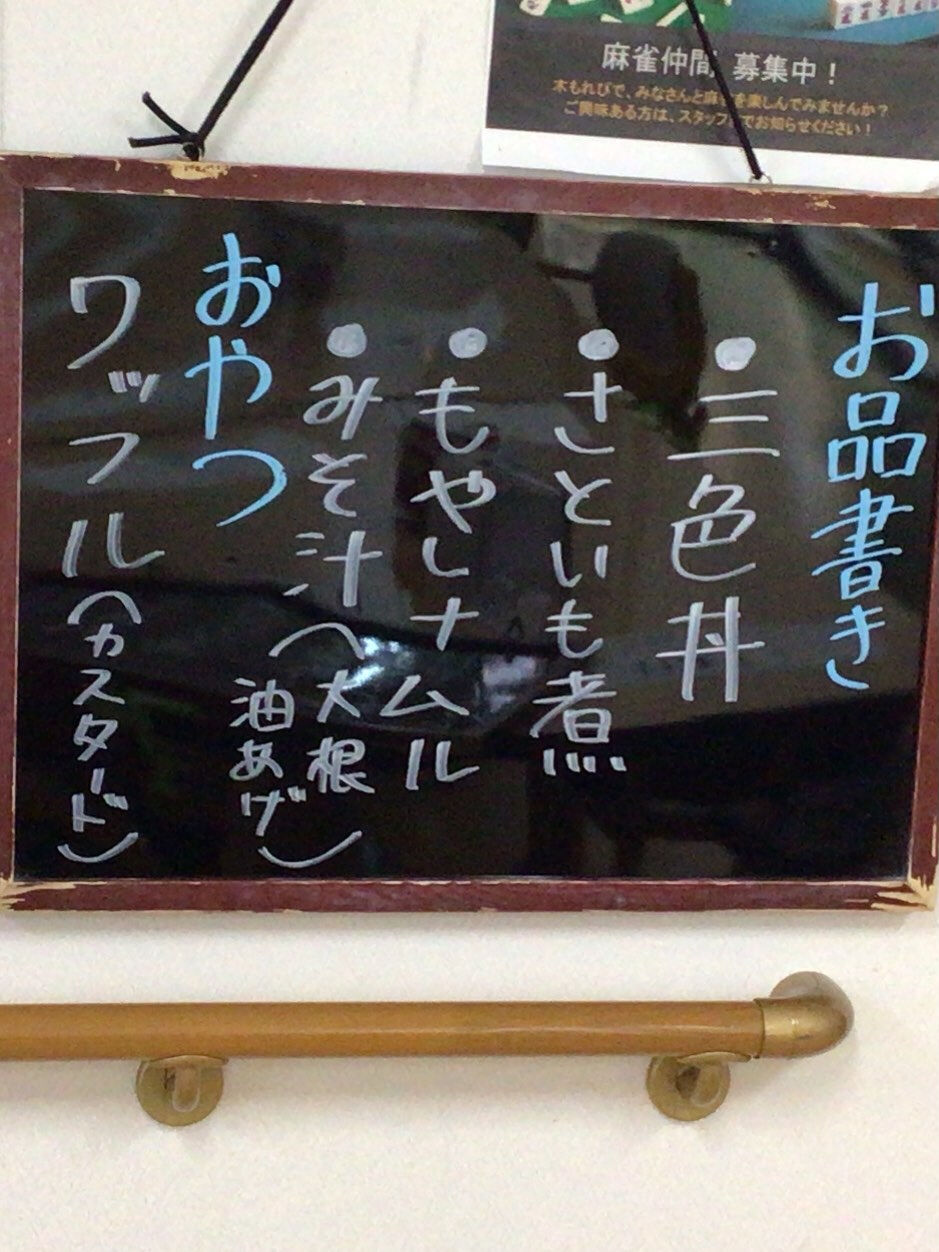 麻雀仲間 募集中！
木もれびで、みなさんと麻雀を楽しんでみませんか？
ご興味ある方は、スタッフまでお知らせください！
お品書き
●三色丼
●さといも煮
●もやしナムル
●みそ汁（大根
油あげ）
おやつ
ワッフル（カスタード）